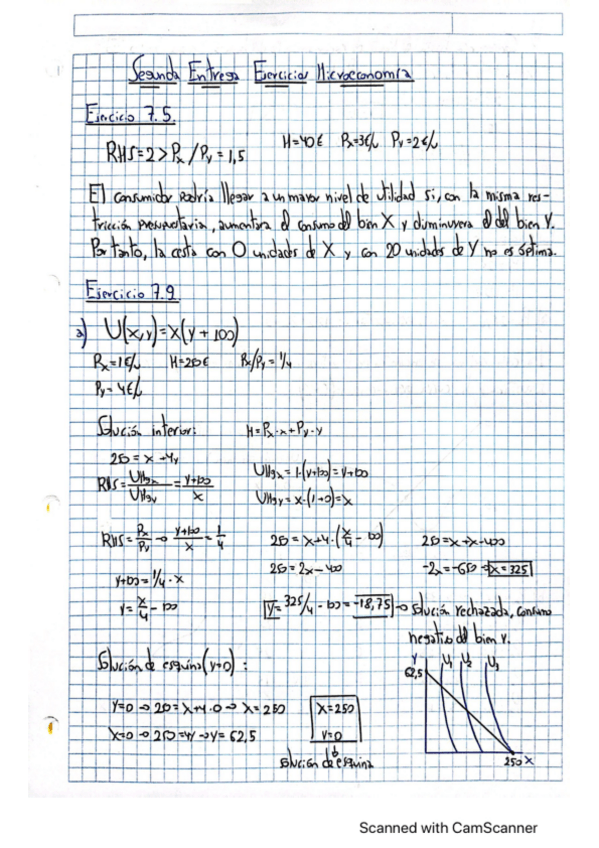 Segunda Entrega Ejercicios Microeconomía
Ejercicio 7.5
RMS=2 > Px/Py = 1,5 M=40€ Px=3€/u Py=2€/u
El consumidor podría llegar a un mayor nivel de utilidad si, con la misma res-
tricción presupuestaria, aumentara el consumo del bien X y disminuyera el del bien Y.
Por tanto, la cesta con 0 unidades de X y con 20 unidades de Y no es óptima.
Ejercicio 7.9
a) U(x,y)=x(y+100)
Px=1€/u M=250€ Px/Py=1/4
Py=4€/u
Solución interior: M=Px·x+Py·y
250=x+4y
RMS=UMgx/UMgy=y+100/x UMgx=1·(y+100)=y+100
UMgy=x·(1+0)=x
RMS=Px/Py→y+100/x=1/4 250=x+4·(x/4-100) 250=x+x-400
y+100=1/4·x 250=2x-400 -2x=-650→x=325
y=x/4-100 y=325/4-100=-18,75→solución rechazada, consumo
negativo del bien Y.
Solución de esquina (y=0):
Y 62,5 U1 U2 U3
Y=0→250=x+4·0→x=250 X=250
X=0→250=4y→y=62,5 Y=0
solución de esquina
250 X
Scanned with CamScanner